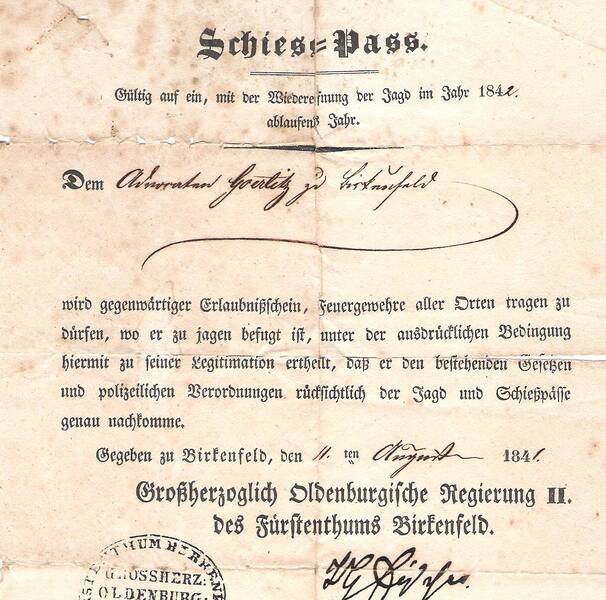 Schiess=Pass.
Gültig auf ein, mit der Wiedereröffnung der Jagd im Jahr 1842.
ablaufend Jahr.
Dem Advocaten Goerlitz zu Birkenfeld
wird gegenwärtiger Erlaubnißschein, Feuergewehre aller Orten tragen zu
dürfen, wo er zu jagen befugt ist, unter der ausdrücklichen Bedingung
hiermit zu seiner Legitimation ertheilt, daß er den bestehenden Gesetzen
und polizeilichen Verordnungen rücksichtlich der Jagd und Schießpässe
genau nachkomme.
Gegeben zu Birkenfeld, den 11. ten August 1841.
Großherzoglich Oldenburgische Regierung II.
des Fürstenthums Birkenfeld.
GROSSHERZ:
OLDENBURG: